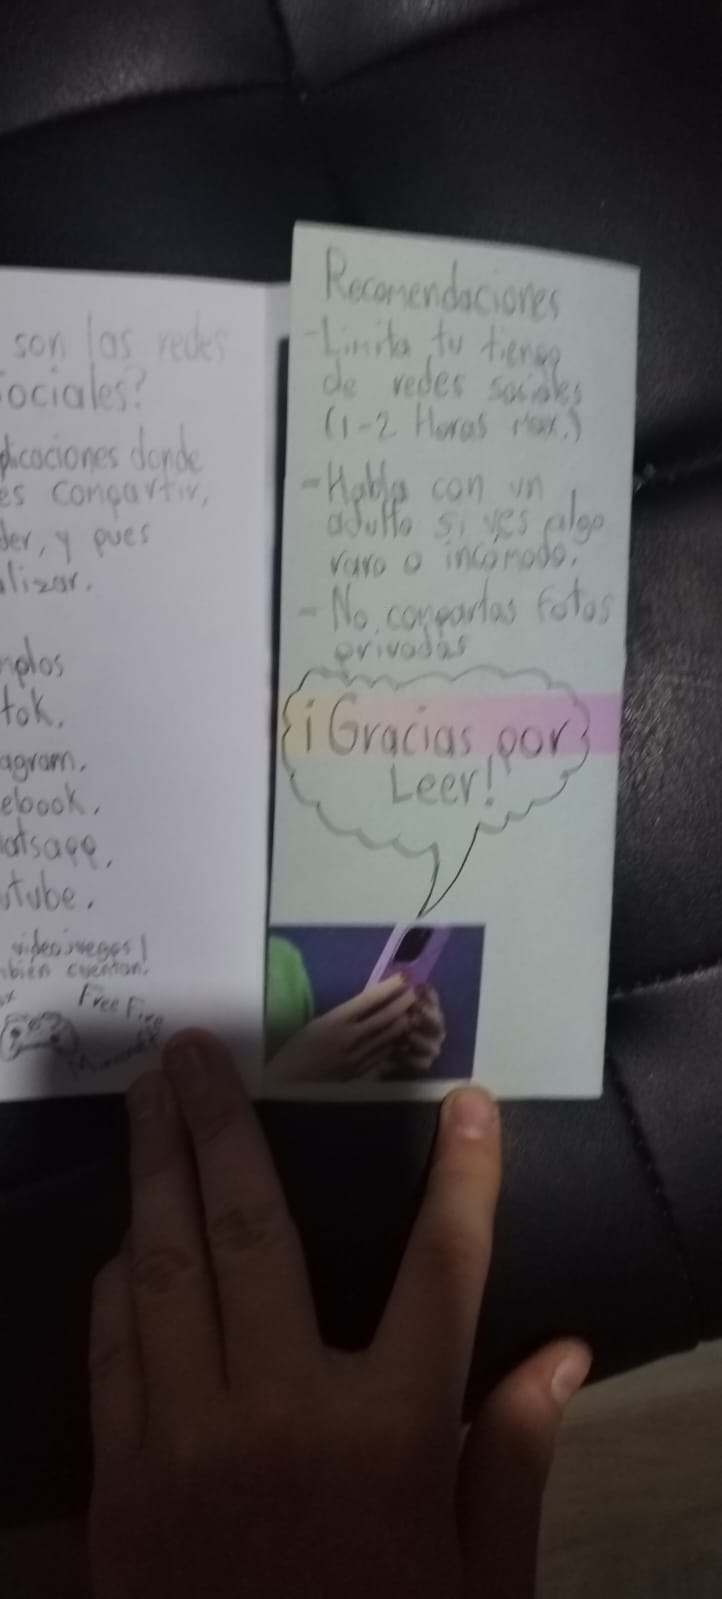 son las redes
ociales?
plicaciones donde
es compartir,
der, y pues
alizar.
mplos
tok.
agram.
ebook.
atsapp.
utube.
videojuegos!
mbién cuentan.
Free Fire
Recomendaciones
-Limita tu tiempo
de redes sociales
(1-2 Horas Max.)
-Habla con un
adulto si ves algo
raro o incómodo.
- No compartas fotos
privadas
¡Gracias por
Leer!